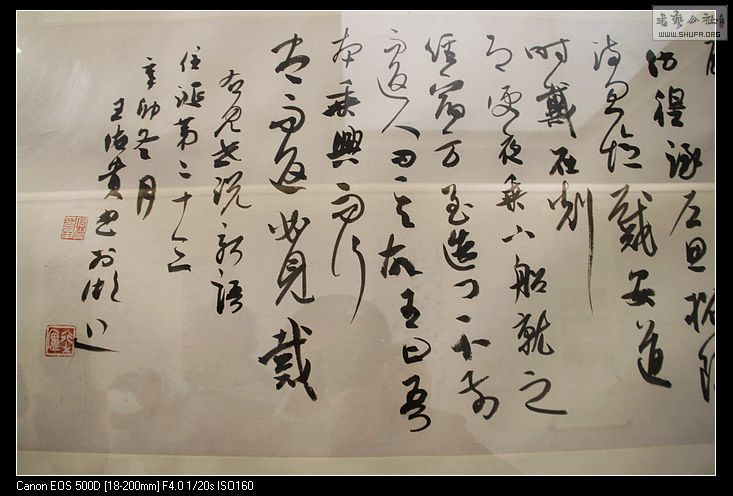 彷徨詠左思招隱
詩忽憶戴安道
時戴在剡
即便夜乘小船就之
經宿方至造门不前
而返人问其故王曰吾
本乘興而行
尽而返必見戴
右見世説新語
任誕第二十三
辛卯冬月
王 貴书於湖上
书藝公社
www.SHUFA.ORG
Canon EOS 500D [18-200mm] F4.0 1/20s ISO160